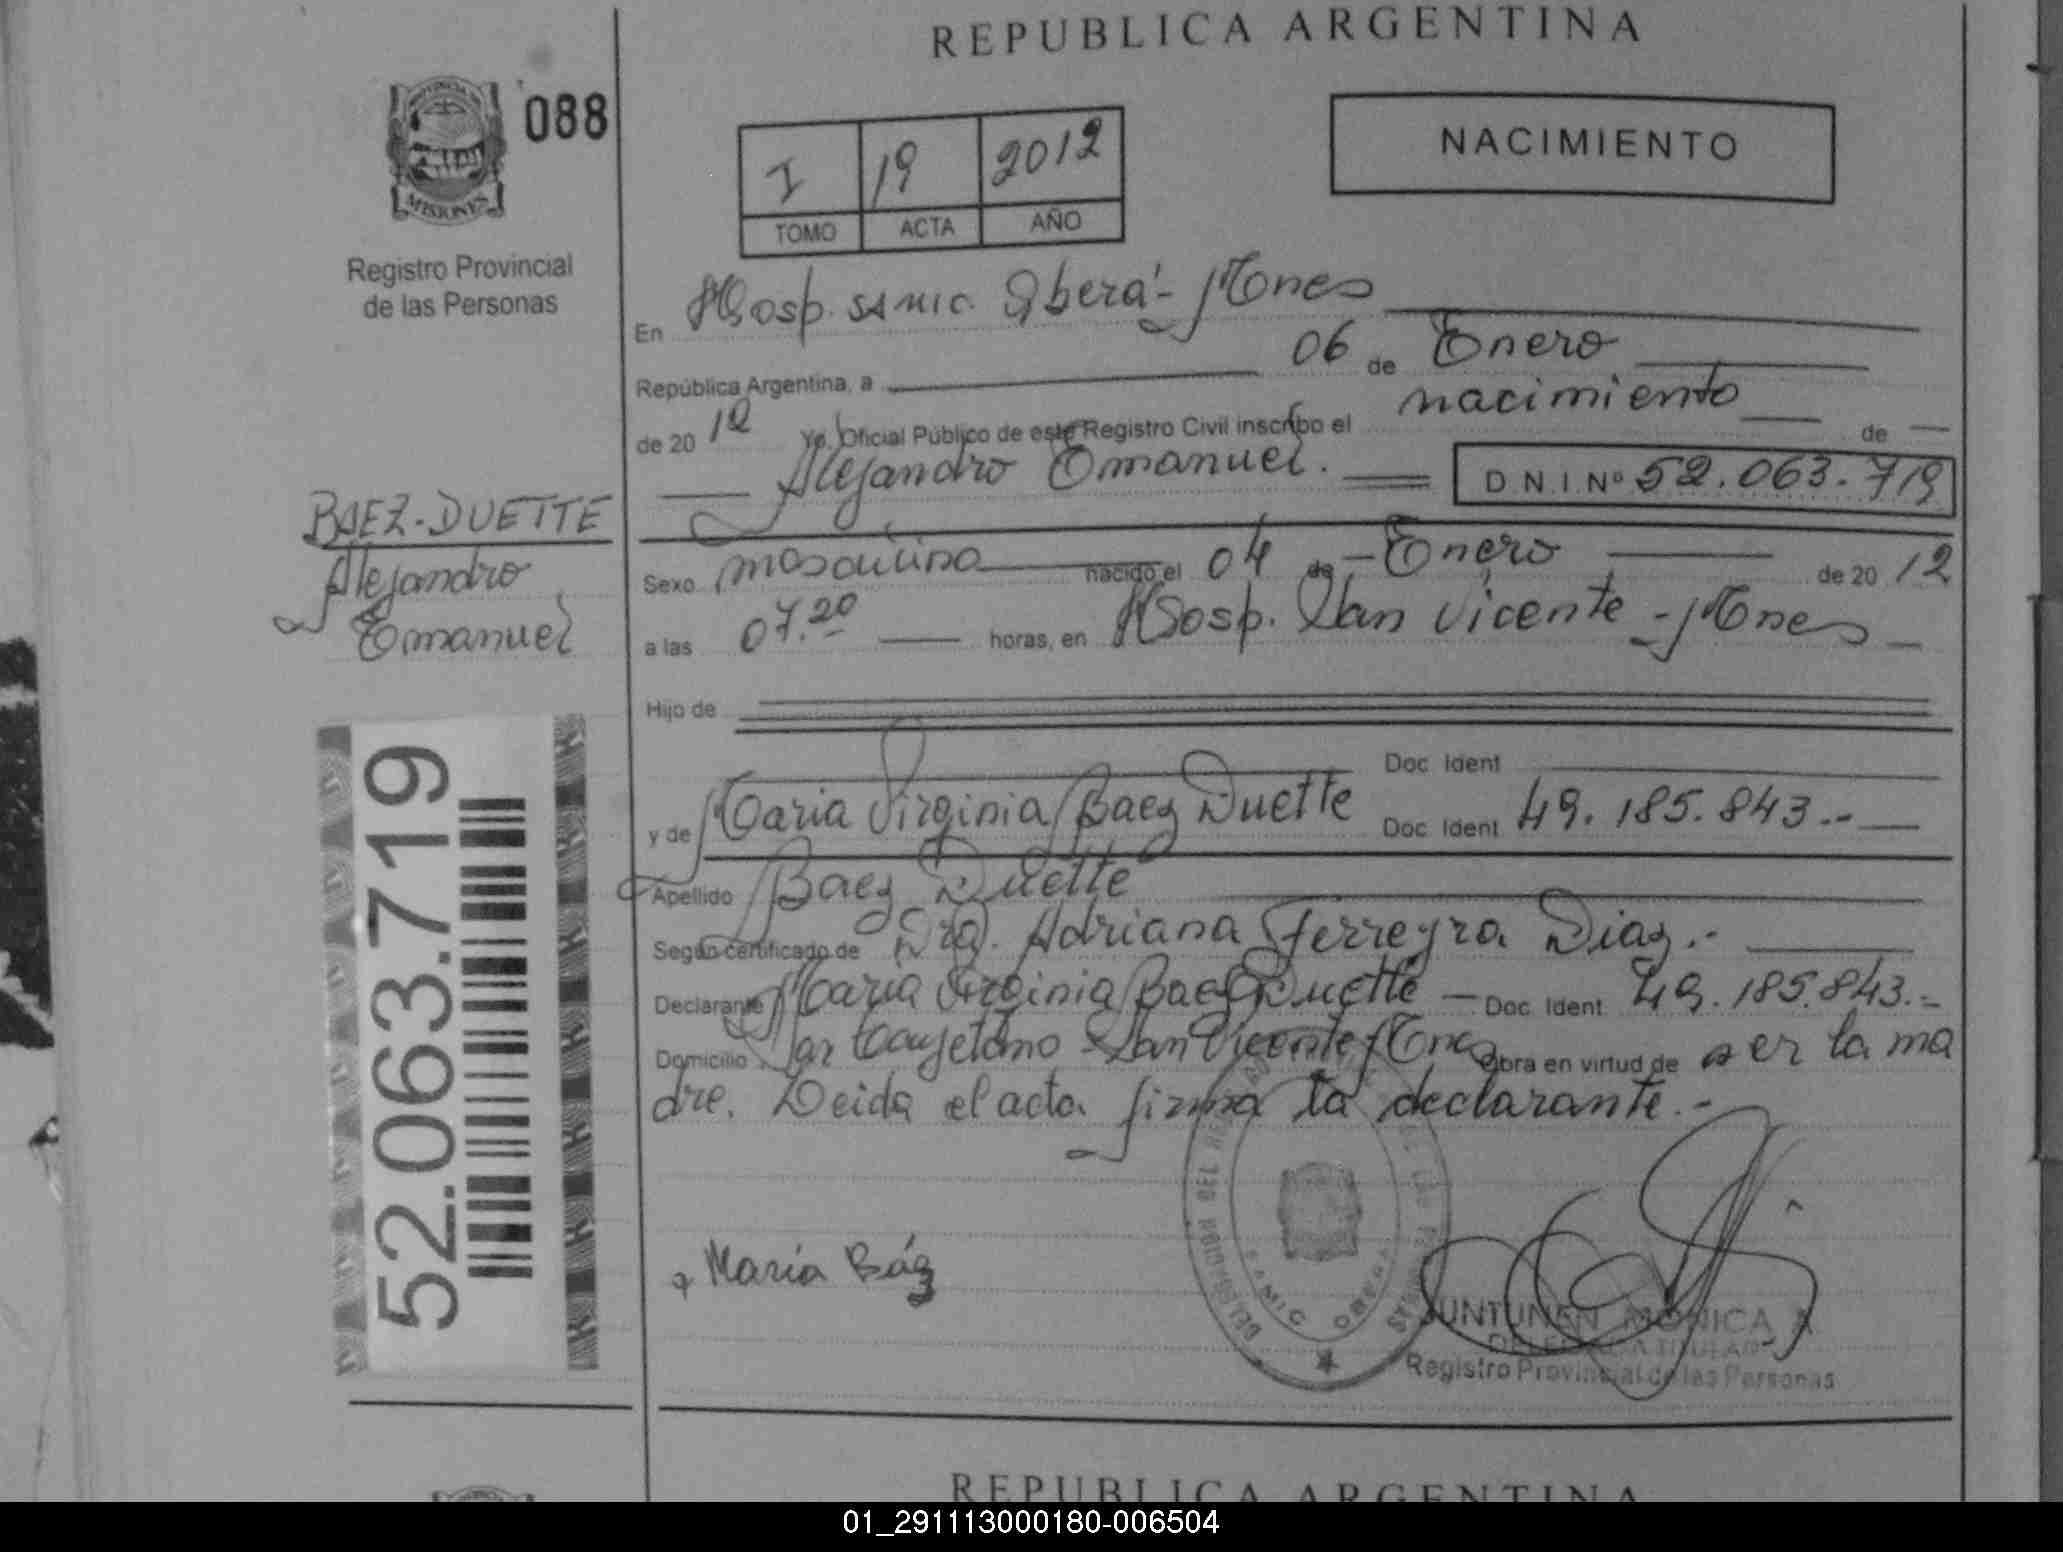 REPUBLICA ARGENTINA
088
MISIONES
Registro Provincial
de las Personas
I 19 2012
TOMO ACTA AÑO
NACIMIENTO
En Hosp. SAMIC. Oberá - Mnes
República Argentina, a 06 de Enero
de 20 12 Yo, Oficial Público de este Registro Civil inscribo el nacimiento de
Alejandro Emanuel. D.N.I.Nº 52.063.719
BAEZ-DUETTE
Alejandro
Emanuel
Sexo masculino nacido el 04 de Enero de 20 12
a las 07.20 horas, en Hosp. San Vicente - Mnes
Hijo de
Doc Ident
y de Maria Virginia Baez Duette Doc Ident 49.185.843.-
Apellido Baez Duette
Según certificado de Dra. Adriana Ferreyra Diaz.-
Declarante Maria Virginia Baez Duette - Doc Ident 49.185.843.-
Domicilio San Cayetano - San Vicente - Mnes Obra en virtud de ser la ma
dre. Leida el acta firma la declarante.-
52.063.719
María Báez
SAMIC OBERA
JUNTUNEN MONICA A.
Registro Provincial de las Personas
REPUBLICA ARGENTINA
01_291113000180-006504